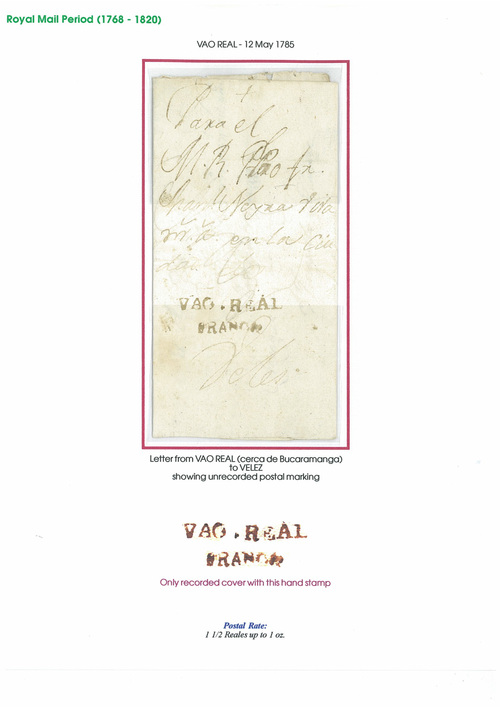 Royal Mail Period (1768 - 1820)
VAO REAL - 12 May 1785
Para el
M. R. P.
en la Ciu
VAO . REAL
FRANCA
Velez
Letter from VAO REAL (cerca de Bucaramanga)
to VELEZ
showing unrecorded postal marking
VAO . REAL
FRANCA
Only recorded cover with this hand stamp
Postal Rate:
1 1/2 Reales up to 1 oz.